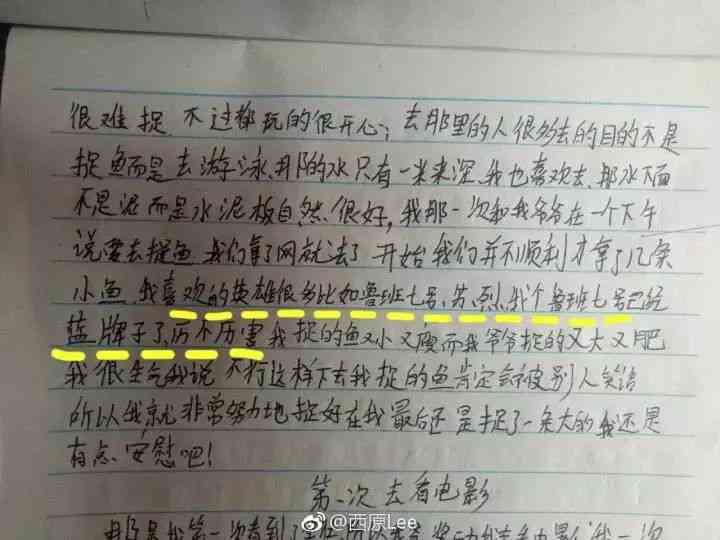 很难捉 不过都玩的很开心；去那里的人很多去的目的不是
捉鱼而是去游泳那的水只有一米来深我也喜欢去那水下面
不是泥而是水泥板自然很好，我那一次和我爷爷在一个下午
说要去捉鱼 我们拿了网就去了 开始我们并不顺利才拿了几条
小鱼，我喜欢的英雄很多比如鲁班七号、苏、烈、我个鲁班七号已经
蓝牌子了、厉不厉害 我捉的鱼又小又瘦而我爷爷捉的又大又肥
我很生气我说 不行这样下去我捉的鱼肯定会被别人笑话
所以我就非常努力地捉好在我最后还是捉了一条大的我还是
有点 安慰吧！
第一次去看电影
那是我第一次看到
@西原Lee